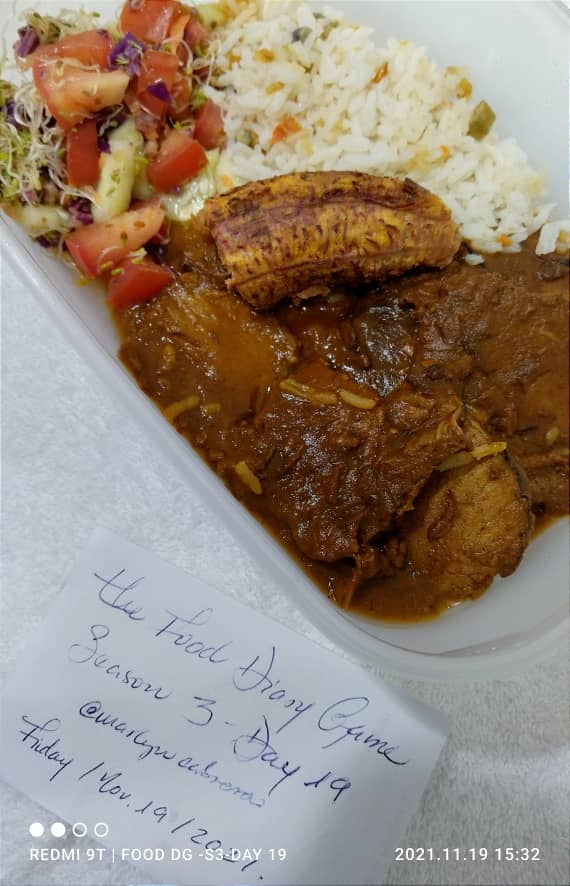 the Food Diary Game
Season 3 - Day 19
@marlyncabrera
Friday / Nov. 19 / 2021.
REDMI 9T | FOOD DG -S3-DAY 19
2021.11.19 15:32